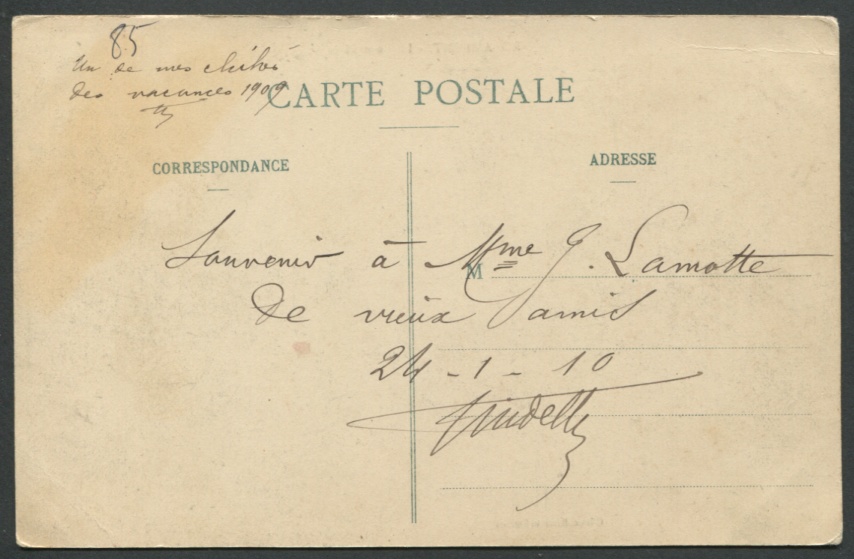 85
Un de mes clichés
des vacances 1909
CARTE POSTALE
CORRESPONDANCE
ADRESSE
Souvenir à Mme J. Lamotte
M
de vieux amis
24-1-10